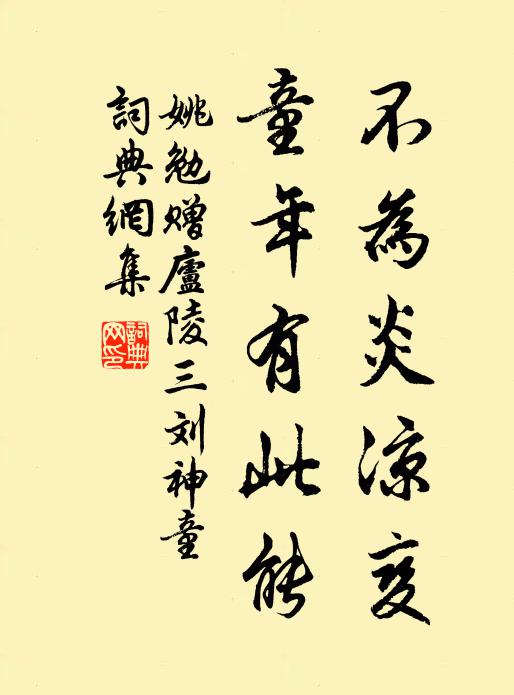 不為炎涼变
童年有此能
姚勉贈廬陵三刘神童
詞典網集
詞典網印